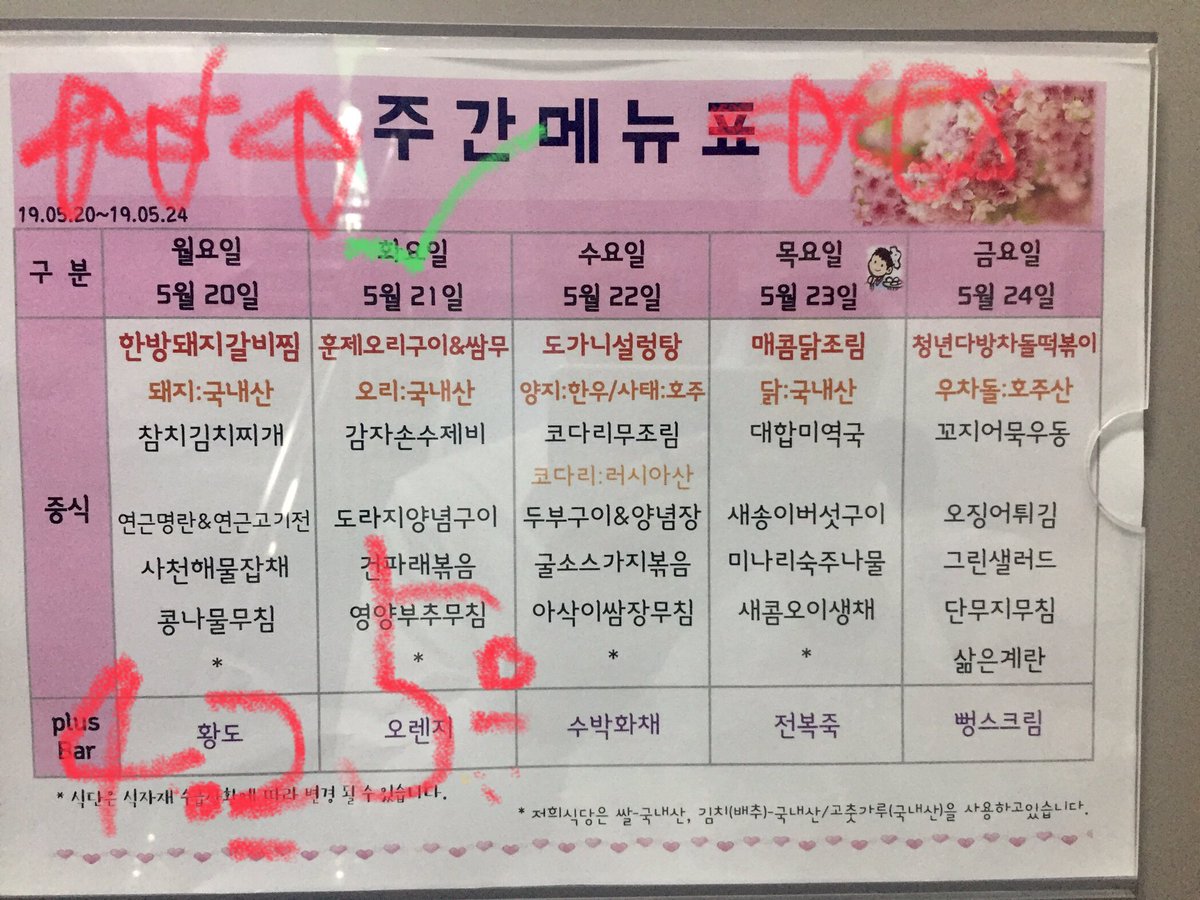 주간메뉴표
19.05.20~19.05.24
구 분 월요일 화요일 수요일 목요일 금요일
5월 20일 5월 21일 5월 22일 5월 23일 5월 24일
중식
한방돼지갈비찜 훈제오리구이&쌈무 도가니설렁탕 매콤닭조림 청년다방차돌떡볶이
돼지:국내산 오리:국내산 양지:한우/사태:호주 닭:국내산 우차돌:호주산
참치김치찌개 감자손수제비 코다리무조림 대합미역국 꼬지어묵우동
코다리:러시아산
연근명란&연근고기전 도라지양념구이 두부구이&양념장 새송이버섯구이 오징어튀김
사천해물잡채 건파래볶음 굴소스가지볶음 미나리숙주나물 그린샐러드
콩나물무침 영양부추무침 아삭이쌈장무침 새콤오이생채 단무지무침
* * * * 삶은계란
plus Bar 황도 오렌지 수박화채 전복죽 뻥스크림
* 식단은 식자재 수급상황에 따라 변경 될 수 있습니다.
* 저희식당은 쌀-국내산, 김치(배추)-국내산/고춧가루(국내산)을 사용하고있습니다.